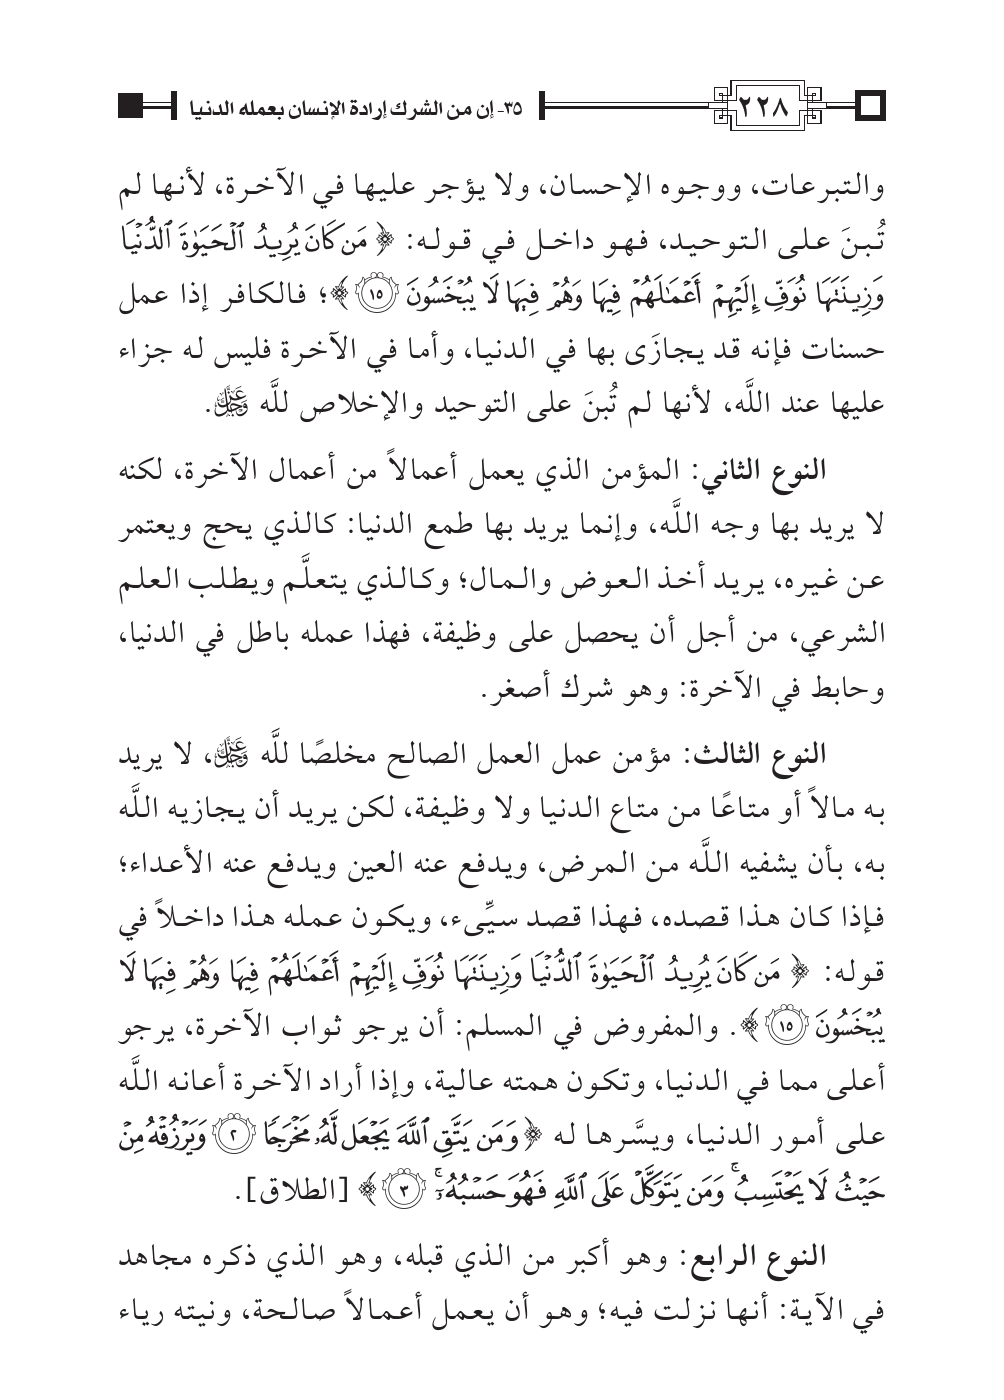 ٢٢٨
٣٥- إن من الشرك إرادة الإنسان بعمله الدنيا
والتبرعات، ووجوه الإحسان، ولا يؤجر عليها في الآخرة، لأنها لم
تُبنَ على التوحيد، فهو داخل في قوله: ﴿ مَن كَانَ يُرِيدُ ٱلْحَيَوٰةَ ٱلدُّنْيَا
وَزِينَتَهَا نُوَفِّ إِلَيْهِمْ أَعْمَـٰلَهُمْ فِيهَا وَهُمْ فِيهَا لَا يُبْخَسُونَ ١٥ ﴾؛ فالكافر إذا عمل
حسنات فإنه قد يجازَى بها في الدنيا، وأما في الآخرة فليس له جزاء
عليها عند اللَّه، لأنها لم تُبنَ على التوحيد والإخلاص للَّه عَزَّ وَجَلَّ.
النوع الثاني: المؤمن الذي يعمل أعمالاً من أعمال الآخرة، لكنه
لا يريد بها وجه اللَّه، وإنما يريد بها طمع الدنيا: كالذي يحج ويعتمر
عن غيره، يريد أخذ العوض والمال؛ وكالذي يتعلَّم ويطلب العلم
الشرعي، من أجل أن يحصل على وظيفة، فهذا عمله باطل في الدنيا،
وحابط في الآخرة: وهو شرك أصغر.
النوع الثالث: مؤمن عمل العمل الصالح مخلصًا للَّه عَزَّ وَجَلَّ، لا يريد
به مالاً أو متاعًا من متاع الدنيا ولا وظيفة، لكن يريد أن يجازيه اللَّه
به، بأن يشفيه اللَّه من المرض، ويدفع عنه العين ويدفع عنه الأعداء؛
فإذا كان هذا قصده، فهذا قصد سيِّىء، ويكون عمله هذا داخلاً في
قوله: ﴿ مَن كَانَ يُرِيدُ ٱلْحَيَوٰةَ ٱلدُّنْيَا وَزِينَتَهَا نُوَفِّ إِلَيْهِمْ أَعْمَـٰلَهُمْ فِيهَا وَهُمْ فِيهَا لَا
يُبْخَسُونَ ١٥ ﴾. والمفروض في المسلم: أن يرجو ثواب الآخرة، يرجو
أعلى مما في الدنيا، وتكون همته عالية، وإذا أراد الآخرة أعانه اللَّه
على أمور الدنيا، ويسَّرها له ﴿ وَمَن يَتَّقِ ٱللَّهَ يَجْعَل لَّهُۥ مَخْرَجًا ٢ وَيَرْزُقْهُ مِنْ
حَيْثُ لَا يَحْتَسِبُ ۚ وَمَن يَتَوَكَّلْ عَلَى ٱللَّهِ فَهُوَ حَسْبُهُۥٓ ۚ ٣ ﴾ [الطلاق].
النوع الرابع: وهو أكبر من الذي قبله، وهو الذي ذكره مجاهد
في الآية: أنها نزلت فيه؛ وهو أن يعمل أعمالاً صالحة، ونيته رياء